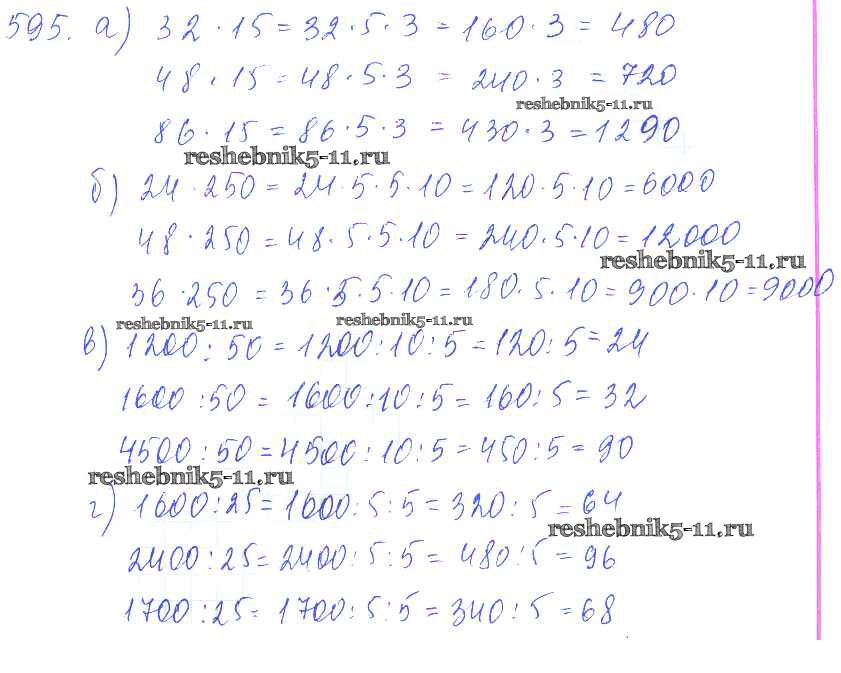 595. а) 32 · 15 = 32 · 5 · 3 = 160 · 3 = 480
48 · 15 = 48 · 5 · 3 = 240 · 3 = 720
reshebnik5-11.ru
86 · 15 = 86 · 5 · 3 = 430 · 3 = 1290
reshebnik5-11.ru
б) 24 · 250 = 24 · 5 · 5 · 10 = 120 · 5 · 10 = 6000
48 · 250 = 48 · 5 · 5 · 10 = 240 · 5 · 10 = 12000
reshebnik5-11.ru
36 · 250 = 36 · 5 · 5 · 10 = 180 · 5 · 10 = 900 · 10 = 9000
reshebnik5-11.ru reshebnik5-11.ru
в) 1200 : 50 = 1200 : 10 : 5 = 120 : 5 = 24
1600 : 50 = 1600 : 10 : 5 = 160 : 5 = 32
4500 : 50 = 4500 : 10 : 5 = 450 : 5 = 90
reshebnik5-11.ru
г) 1600 : 25 = 1600 : 5 : 5 = 320 : 5 = 64
reshebnik5-11.ru
2400 : 25 = 2400 : 5 : 5 = 480 : 5 = 96
1700 : 25 = 1700 : 5 : 5 = 340 : 5 = 68